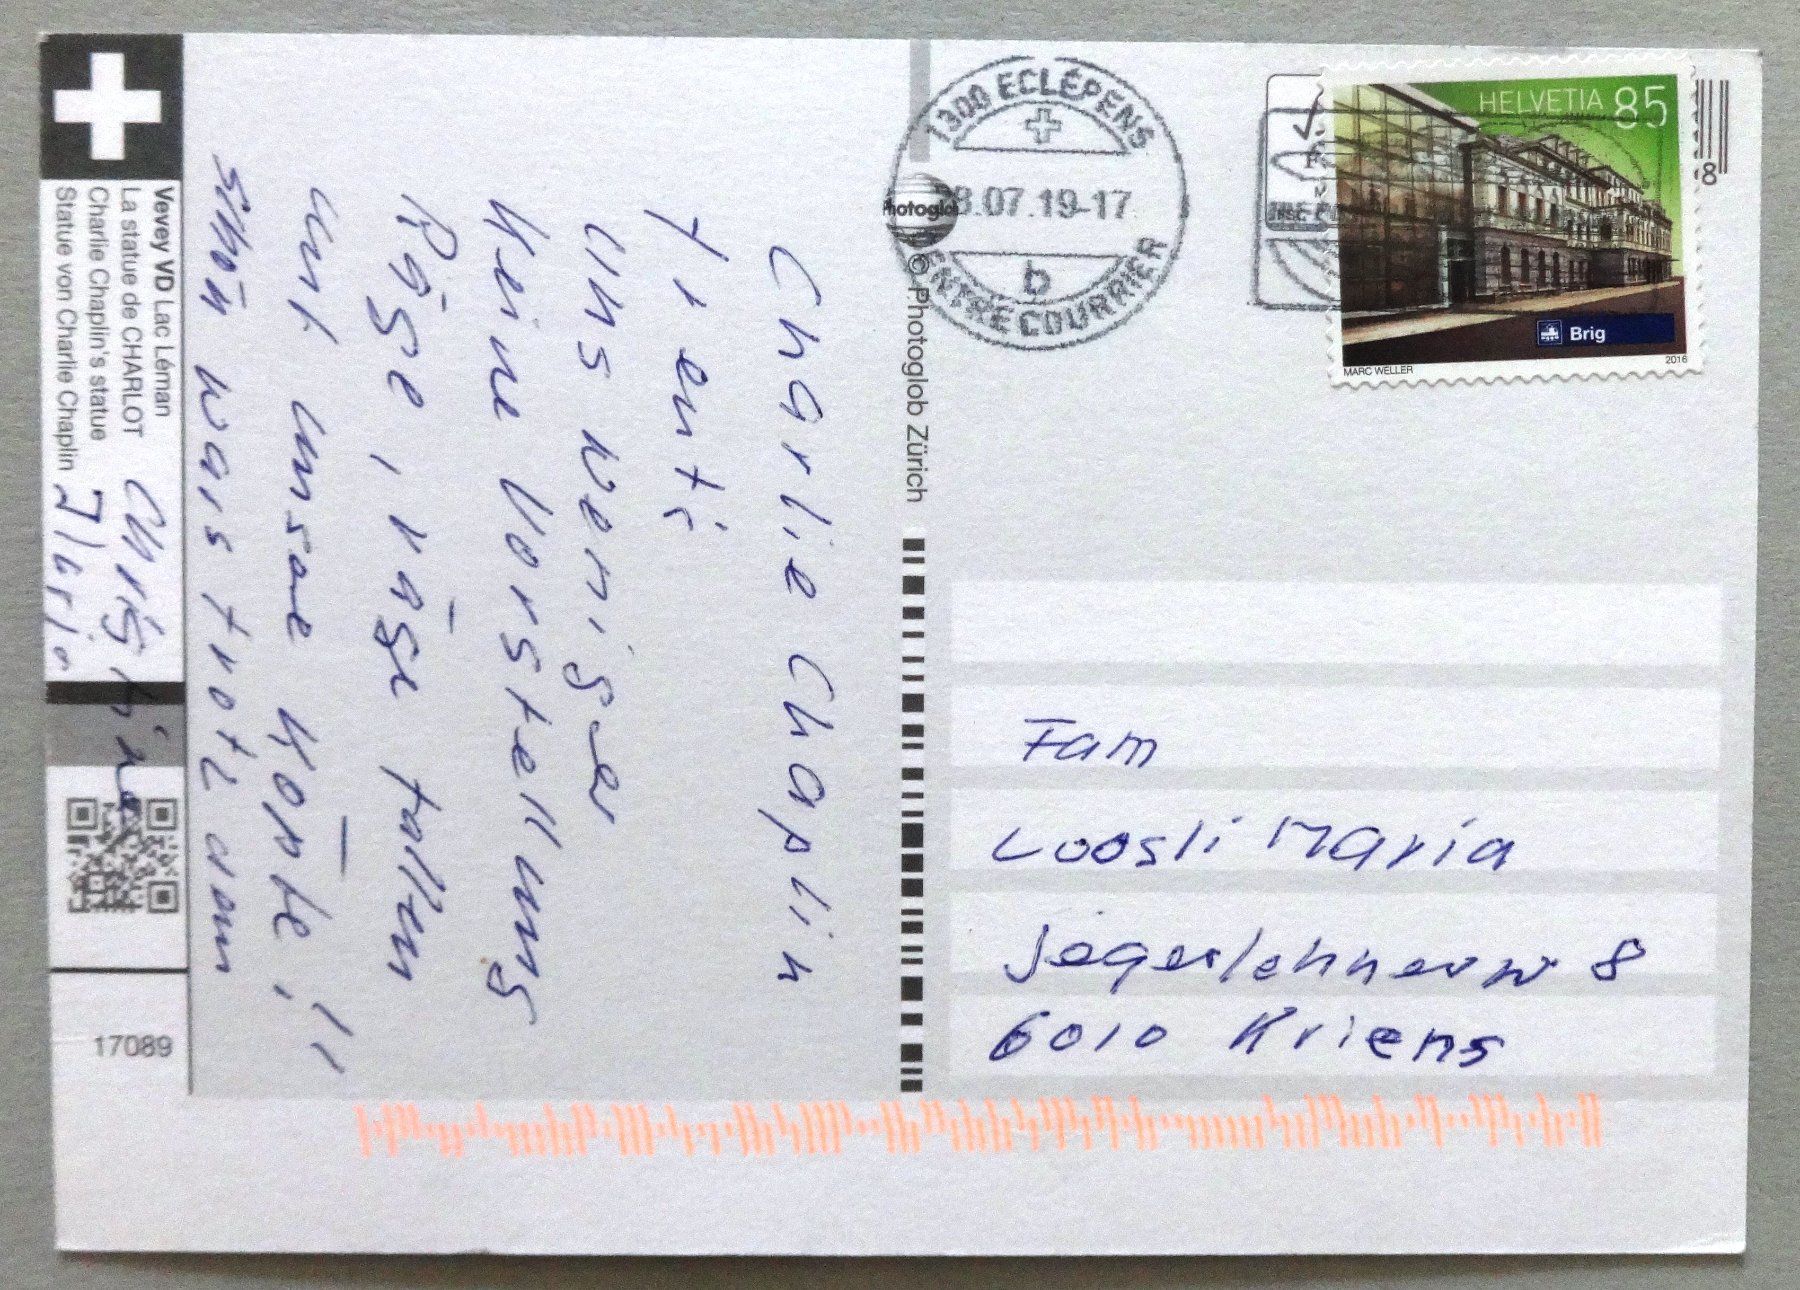 Vevey VD Lac Léman
La statue de CHARLOT
Charlie Chaplin's statue
Statue von Charlie Chaplin
17089
Charlie Chaplin
uns weniger
Keine Vorstellung
Räge, räge tallen
unt unsae
schön was trotz dam
Photoglob
© Photoglob Zürich
1300 ECLÉPENS
8.07.19-17
b
CENTRE COURRIER
HELVETIA 85
Brig
MARC WELLER
2016
8
Fam
Loosli Maria
jägerlehnerw 8
6010 Kriens